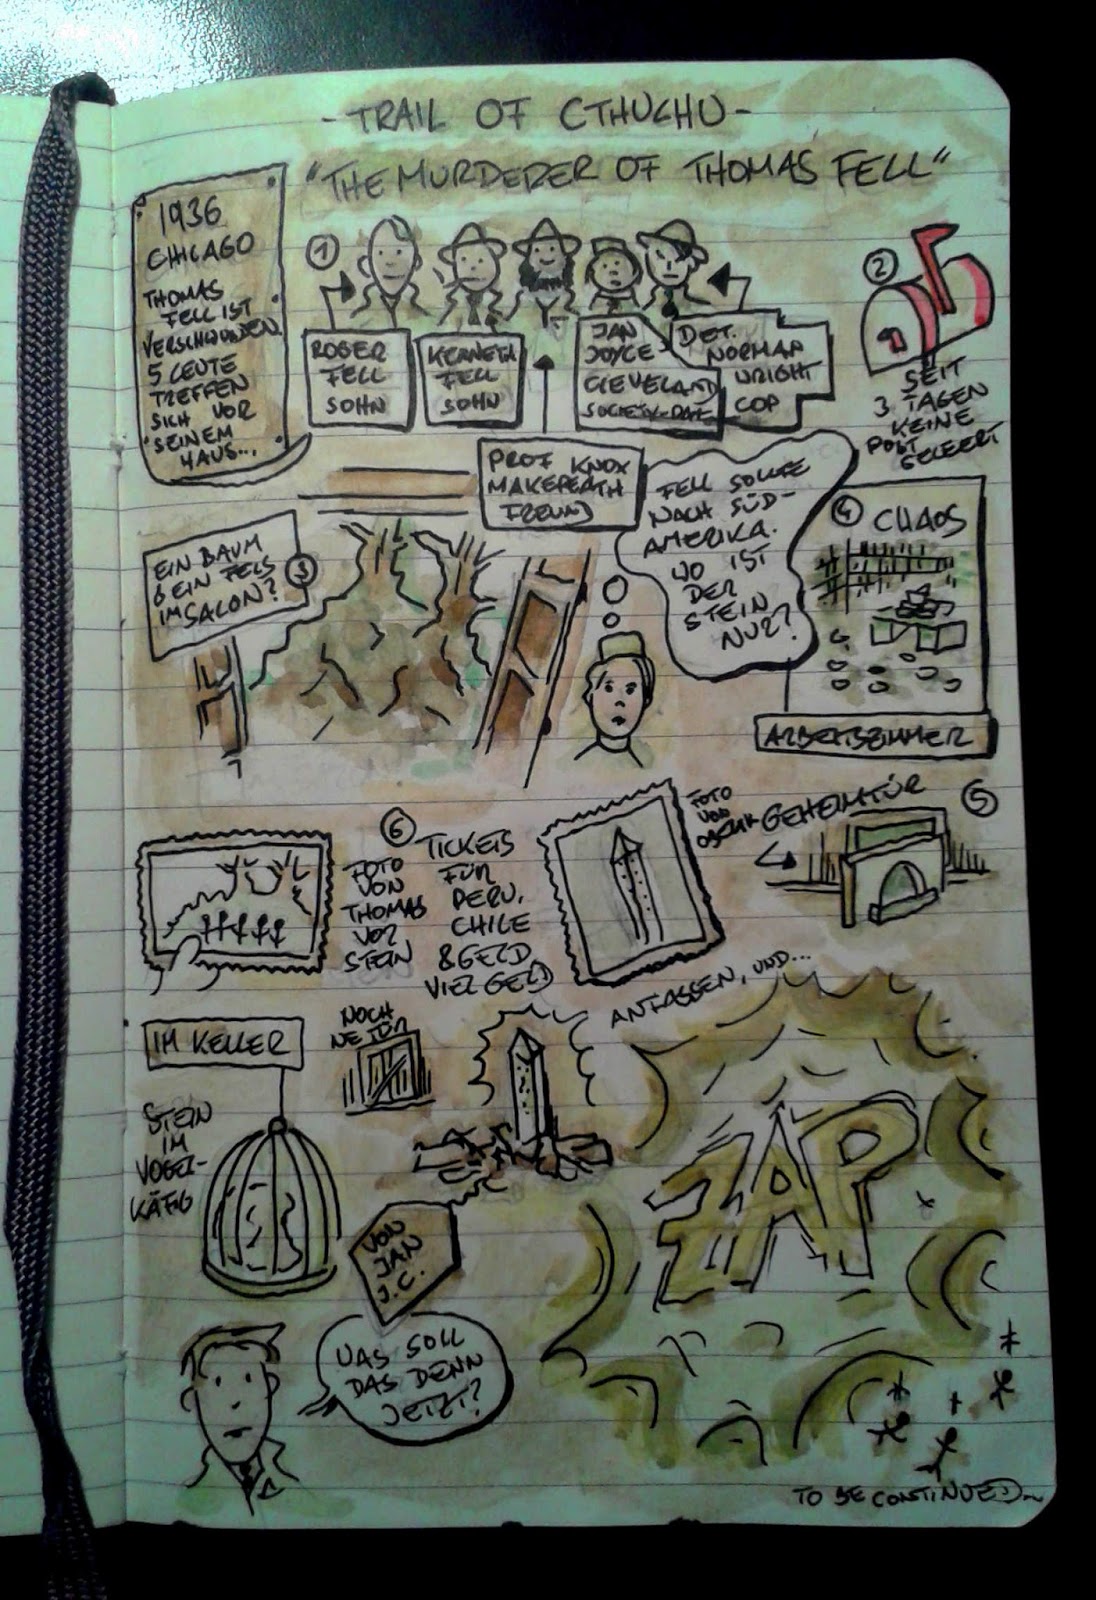 - TRAIL OF CTHULHU -
"THE MURDERER OF THOMAS FELL"
1936
CHICAGO
THOMAS
FELL IST
VERSCHWUNDEN.
5 LEUTE
TREFFEN
SICH VOR
SEINEM
HAUS...
1
ROGER
FELL
SOHN
KENNETH
FELL
SOHN
PROF KNOX
FREUND
JAN
JOYCE
CLEVELAND
DET.
NORMAN
WRIGHT
COP
2
SEIT
3 TAGEN
KEINE
POST
GELEERT
EIN BAUM
& EIN FELS
IM SALON?
3
FELL SOLLTE
NACH SÜD-
AMERIKA.
WO IST
DER
STEIN
NUR?
4 CHAOS
ARBEITSZIMMER
GEHEIMTÜR
5
6
FOTO
VON
THOMAS
VOR
STEIN
TICKETS
FÜR
PERU,
CHILE
& GELD
VIEL GELD
FOTO
VON
IM KELLER
STEIN
IM
VOGEL-
KÄFIG
NOCH
NE TÜR
ANFASSEN, UND...
ZAP
VON
JAN
J.C.
WAS SOLL
DAS DENN
JETZT?
TO BE CONTINUED